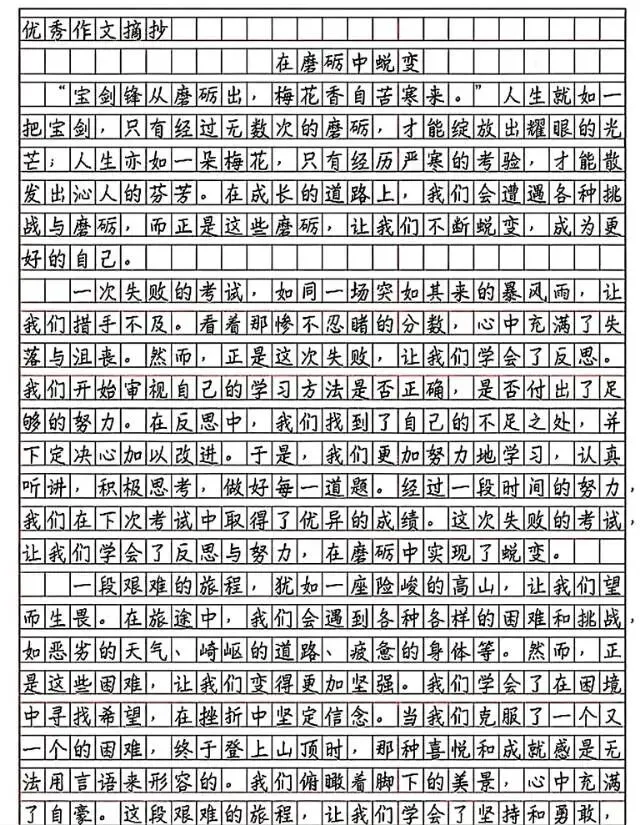 优秀作文摘抄
在磨砺中蜕变
“宝剑锋从磨砺出，梅花香自苦寒来。”人生就如一
把宝剑，只有经过无数次的磨砺，才能绽放出耀眼的光
芒；人生亦如一朵梅花，只有经历严寒的考验，才能散
发出沁人的芬芳。在成长的道路上，我们会遭遇各种挑
战与磨砺，而正是这些磨砺，让我们不断蜕变，成为更
好的自己。
一次失败的考试，如同一场突如其来的暴风雨，让
我们措手不及。看着那惨不忍睹的分数，心中充满了失
落与沮丧。然而，正是这次失败，让我们学会了反思。
我们开始审视自己的学习方法是否正确，是否付出了足
够的努力。在反思中，我们找到了自己的不足之处，并
下定决心加以改进。于是，我们更加努力地学习，认真
听讲，积极思考，做好每一道题。经过一段时间的努力，
我们在下次考试中取得了优异的成绩。这次失败的考试，
让我们学会了反思与努力，在磨砺中实现了蜕变。
一段艰难的旅程，犹如一座险峻的高山，让我们望
而生畏。在旅途中，我们会遇到各种各样的困难和挑战，
如恶劣的天气、崎岖的道路、疲惫的身体等。然而，正
是这些困难，让我们变得更加坚强。我们学会了在困境
中寻找希望，在挫折中坚定信念。当我们克服了一个又
一个的困难，终于登上山顶时，那种喜悦和成就感是无
法用言语来形容的。我们俯瞰着脚下的美景，心中充满
了自豪。这段艰难的旅程，让我们学会了坚持和勇敢，